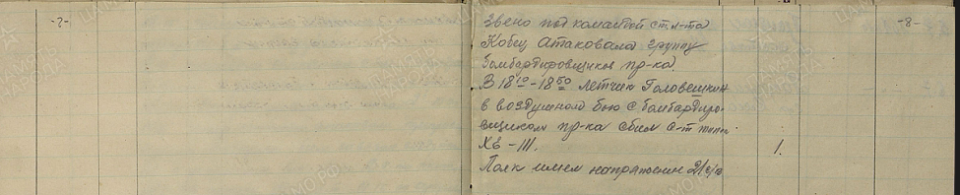 -7-
-8-
звено под командой ст л-та
Кобец атаковала группу
бомбардировщиков пр-ка.
В 18¹⁰-18⁵⁰ летчик Головешкин
в воздушном бою с бомбардиро-
вщиком пр-ка сбил с-т типа
ХЕ-III.
1.
Полк имел напряжение 21 с/в